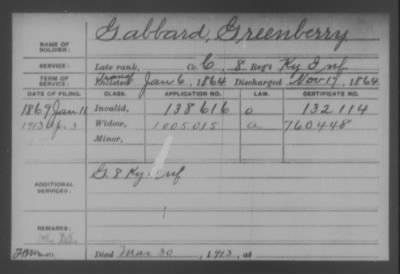 Gabbard, Greenberry
NAME OF SOLDIER:
SERVICE: Late rank, Co. C, 8 Reg't Ky Inf
TERM OF SERVICE: Enlisted Jan 6, 1864 Discharged Nov 17, 1864
DATE OF FILING. CLASS. APPLICATION NO. LAW. CERTIFICATE NO.
1869 Jan 11 Invalid, 138616 o 132114
1913 Ap. 3 Widow, 1005015 a 760448
Minor,
ADDITIONAL SERVICES: G. 8 Ky. Inf
REMARKS:
Died Mar 30, 1913, at